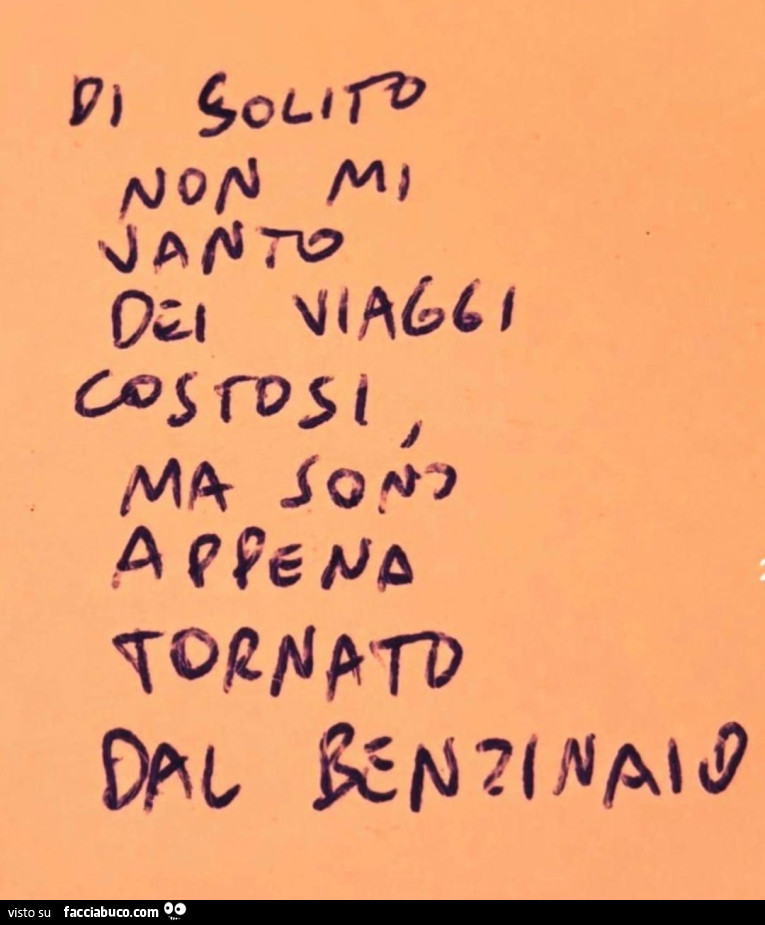 DI SOLITO
NON MI
VANTO
DEI VIAGGI
COSTOSI,
MA SONO
APPENA
TORNATO
DAL BENZINAIO
visto su facciabuco.com